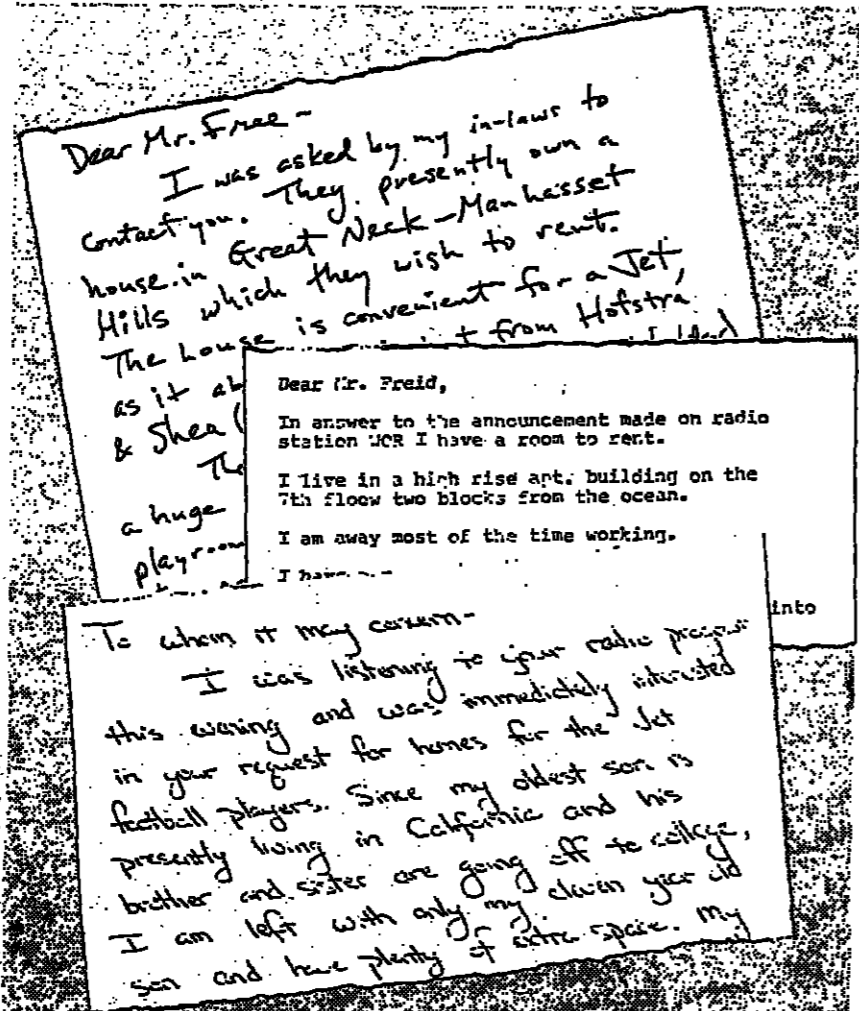 Dear Mr. Free-
I was asked by my in-laws to
contact you. They presently own a
house in Great Neck-Manhasset
Hills which they wish to rent.
The house is convenient for a Jet,
as it ab from Hofstra
& Shea (
The
a huge
playroom
Dear Mr. Freid,
In answer to the announcement made on radio
station I have a room to rent.
I live in a high rise apt. building on the
7th floow two blocks from the ocean.
I am away most of the time working.
I have
into
To whom it may concern-
I was listening to your radio program
this evening and was immediately interested
in your request for homes for the Jet
football players. Since my oldest son is
presently living in California and his
brother and sister are going off to college,
I am left with only my eleven year old
son and have plenty of extra space. My